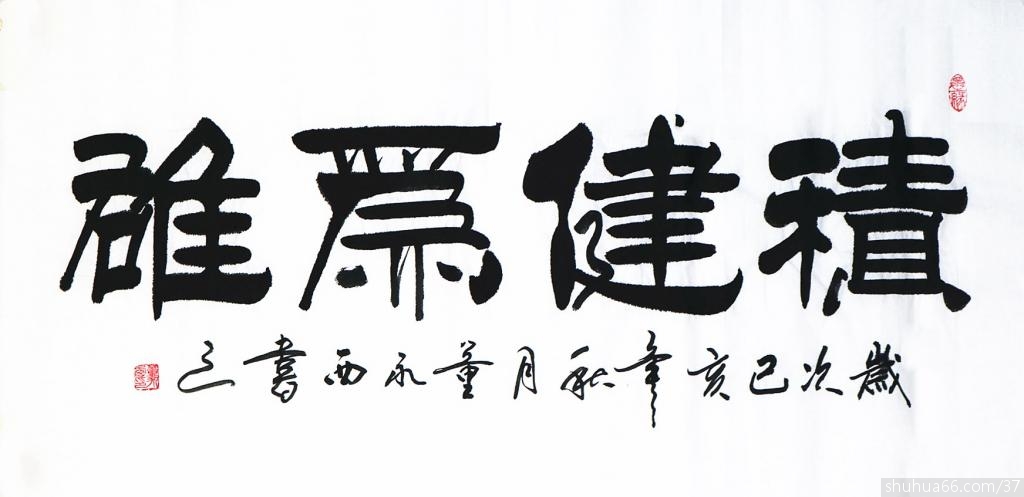 積健為雄
歲次己亥年秋月董永西書之
shuhua66.com/37